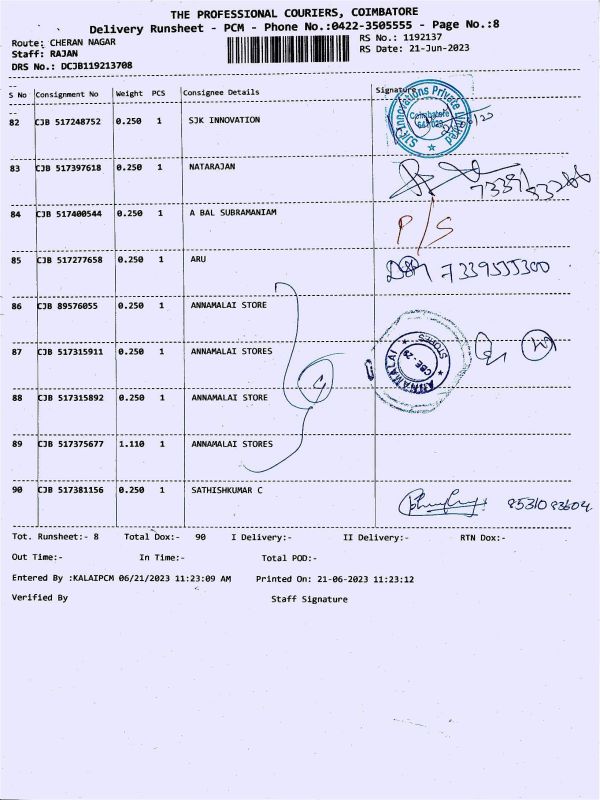 THE PROFESSIONAL COURIERS, COIMBATORE
Delivery Runsheet - PCM - Phone No.:0422-3505555 - Page No.:8
Route: CHERAN NAGAR RS No.: 1192137
Staff: RAJAN RS Date: 21-Jun-2023
DRS No.: DCJB119213708
S No Consignment No Weight PCS Consignee Details Signature
82 CJB 517248752 0.250 1 SJK INNOVATION
SJK Innovations Private Limited
Coimbatore
83 CJB 517397618 0.250 1 NATARAJAN
84 CJB 517400544 0.250 1 A BAL SUBRAMANIAM P/S
85 CJB 517277658 0.250 1 ARU 7339555300
86 CJB 89576055 0.250 1 ANNAMALAI STORE
87 CJB 517315911 0.250 1 ANNAMALAI STORES
ANNAMALAI STORES
CBE-29
88 CJB 517315892 0.250 1 ANNAMALAI STORE
4
89 CJB 517375677 1.110 1 ANNAMALAI STORES
90 CJB 517381156 0.250 1 SATHISHKUMAR C
Tot. Runsheet:- 8 Total Dox:- 90 I Delivery:- II Delivery:- RTN Dox:-
Out Time:- In Time:- Total POD:-
Entered By :KALAIPCM 06/21/2023 11:23:09 AM Printed On: 21-06-2023 11:23:12
Verified By Staff Signature